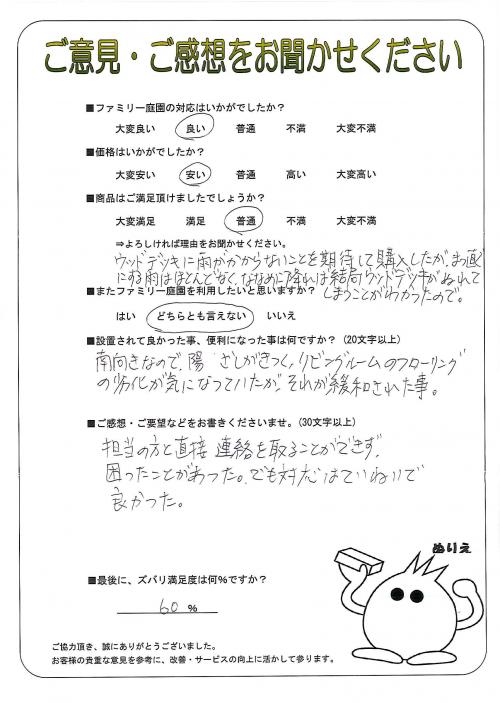 ご意見・ご感想をお聞かせください
■ファミリー庭園の対応はいかがでしたか？
大変良い 良い 普通 不満 大変不満
■価格はいかがでしたか？
大変安い 安い 普通 高い 大変高い
■商品はご満足頂けましたでしょうか？
大変満足 満足 普通 不満 大変不満
⇒よろしければ理由をお聞かせください。
ウッドデッキに雨がかからないことを期待して購入したが、まっ直ぐ
にふる雨はほとんどなく、ななめに降れば結局ウッドデッキがぬれて
しまうことがわかったので。
■またファミリー庭園を利用したいと思いますか？
はい どちらとも言えない いいえ
■設置されて良かった事、便利になった事は何ですか？（20文字以上）
南向きなので、陽ざしがきつく、リビングルームのフローリング
の劣化が気になっていたが、それが緩和された事。
■ご感想・ご要望などをお書きくださいませ。（30文字以上）
担当の方と直接連絡を取ることができず、
困ったことがあった。でも対応はていねいで
良かった。
ぬりえ
■最後に、ズバリ満足度は何％ですか？
60 ％
ご協力頂き、誠にありがとうございました。
お客様の貴重な意見を参考に、改善・サービスの向上に活かして参ります。